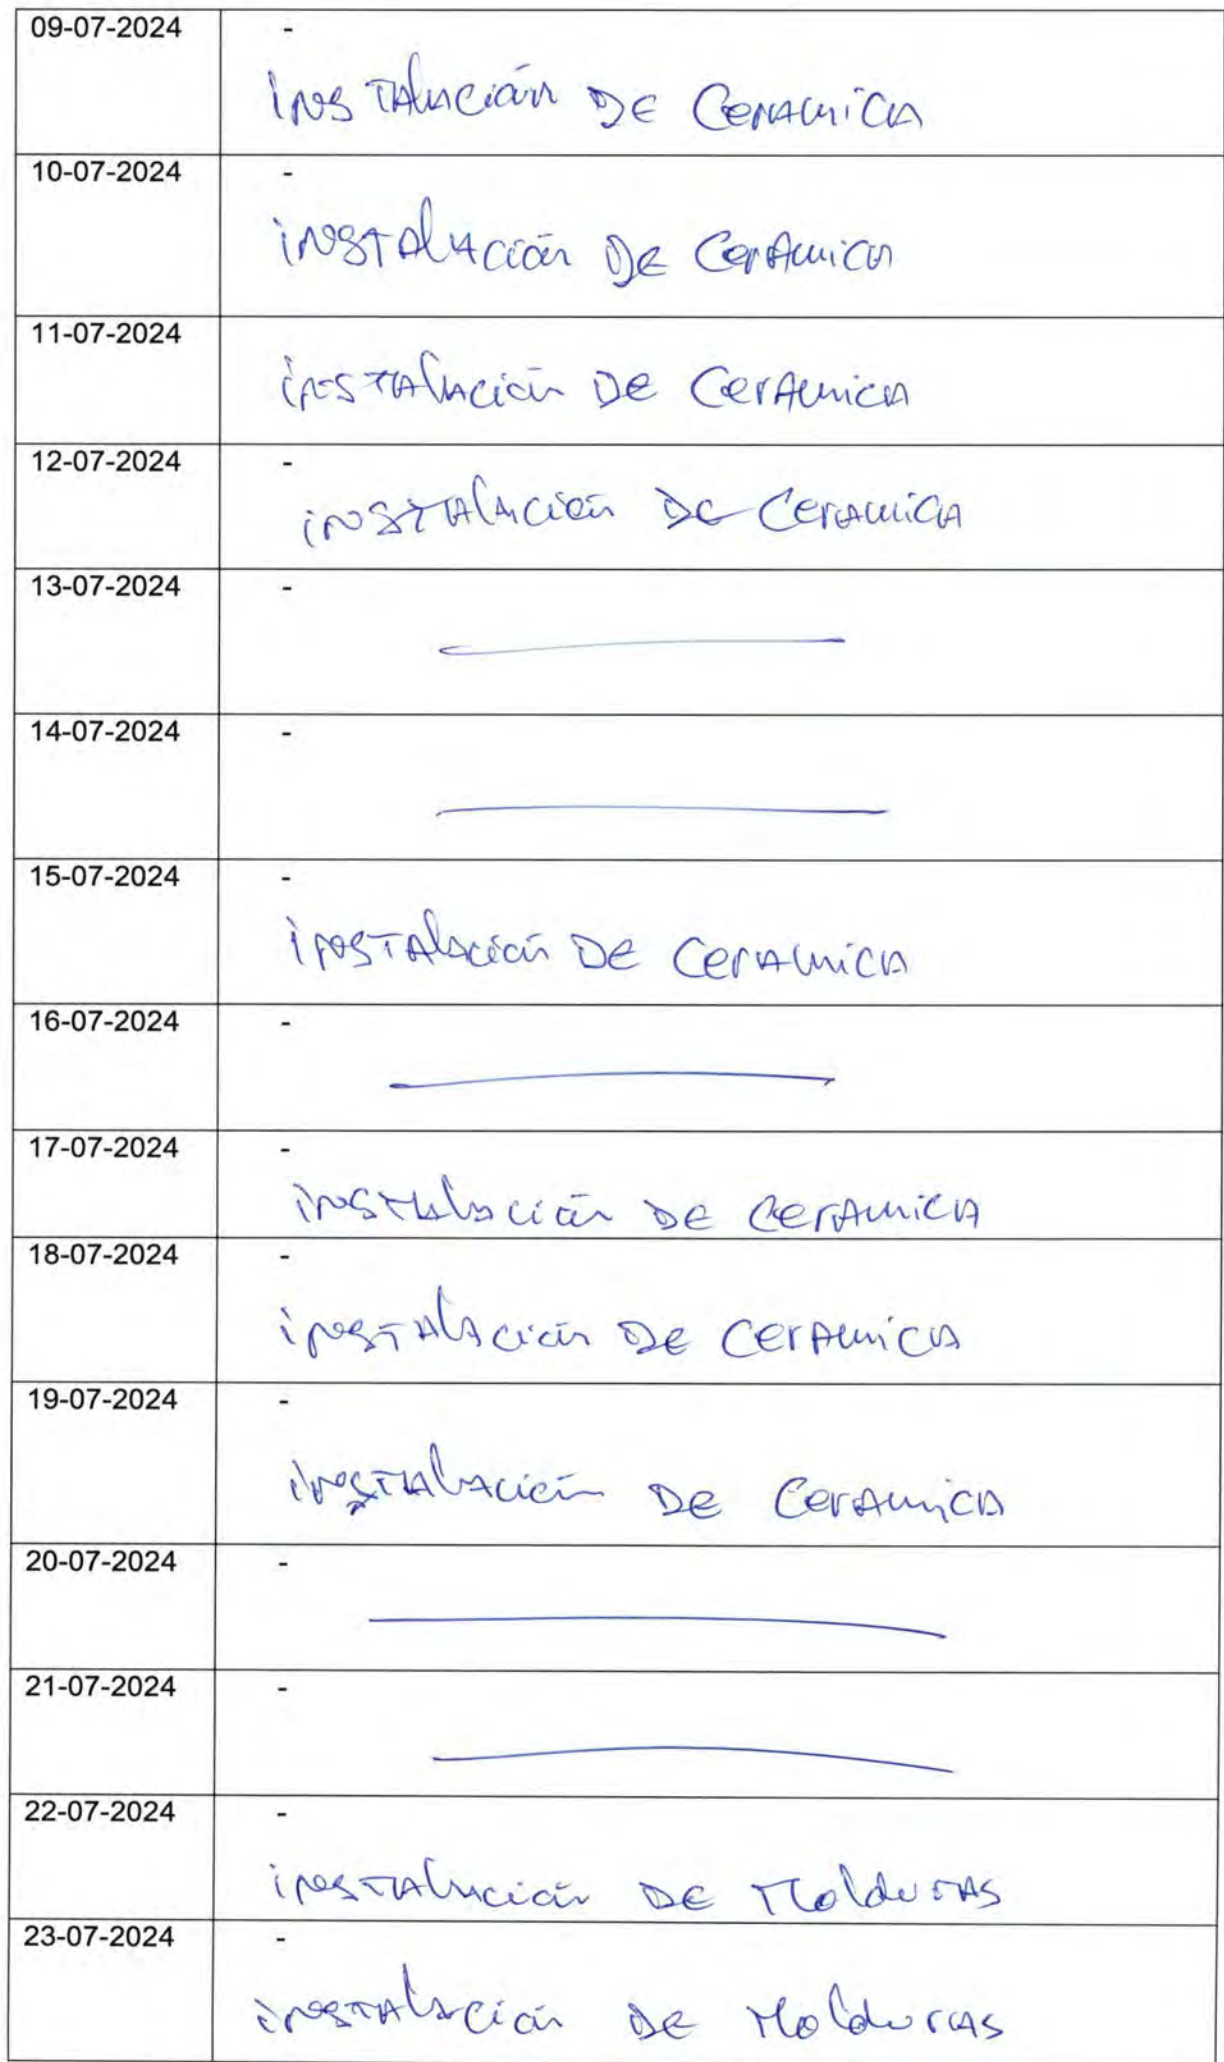 09-07-2024
-
instalación DE Ceramica
10-07-2024
-
instalación DE Ceramica
11-07-2024
instalación DE Ceramica
12-07-2024
-
instalación DE Ceramica
13-07-2024
-
14-07-2024
-
15-07-2024
-
instalación DE Ceramica
16-07-2024
-
17-07-2024
-
instalación DE Ceramica
18-07-2024
-
instalación DE Ceramica
19-07-2024
-
instalación DE Ceramica
20-07-2024
-
21-07-2024
-
22-07-2024
-
instalación DE Molduras
23-07-2024
-
instalación DE Molduras